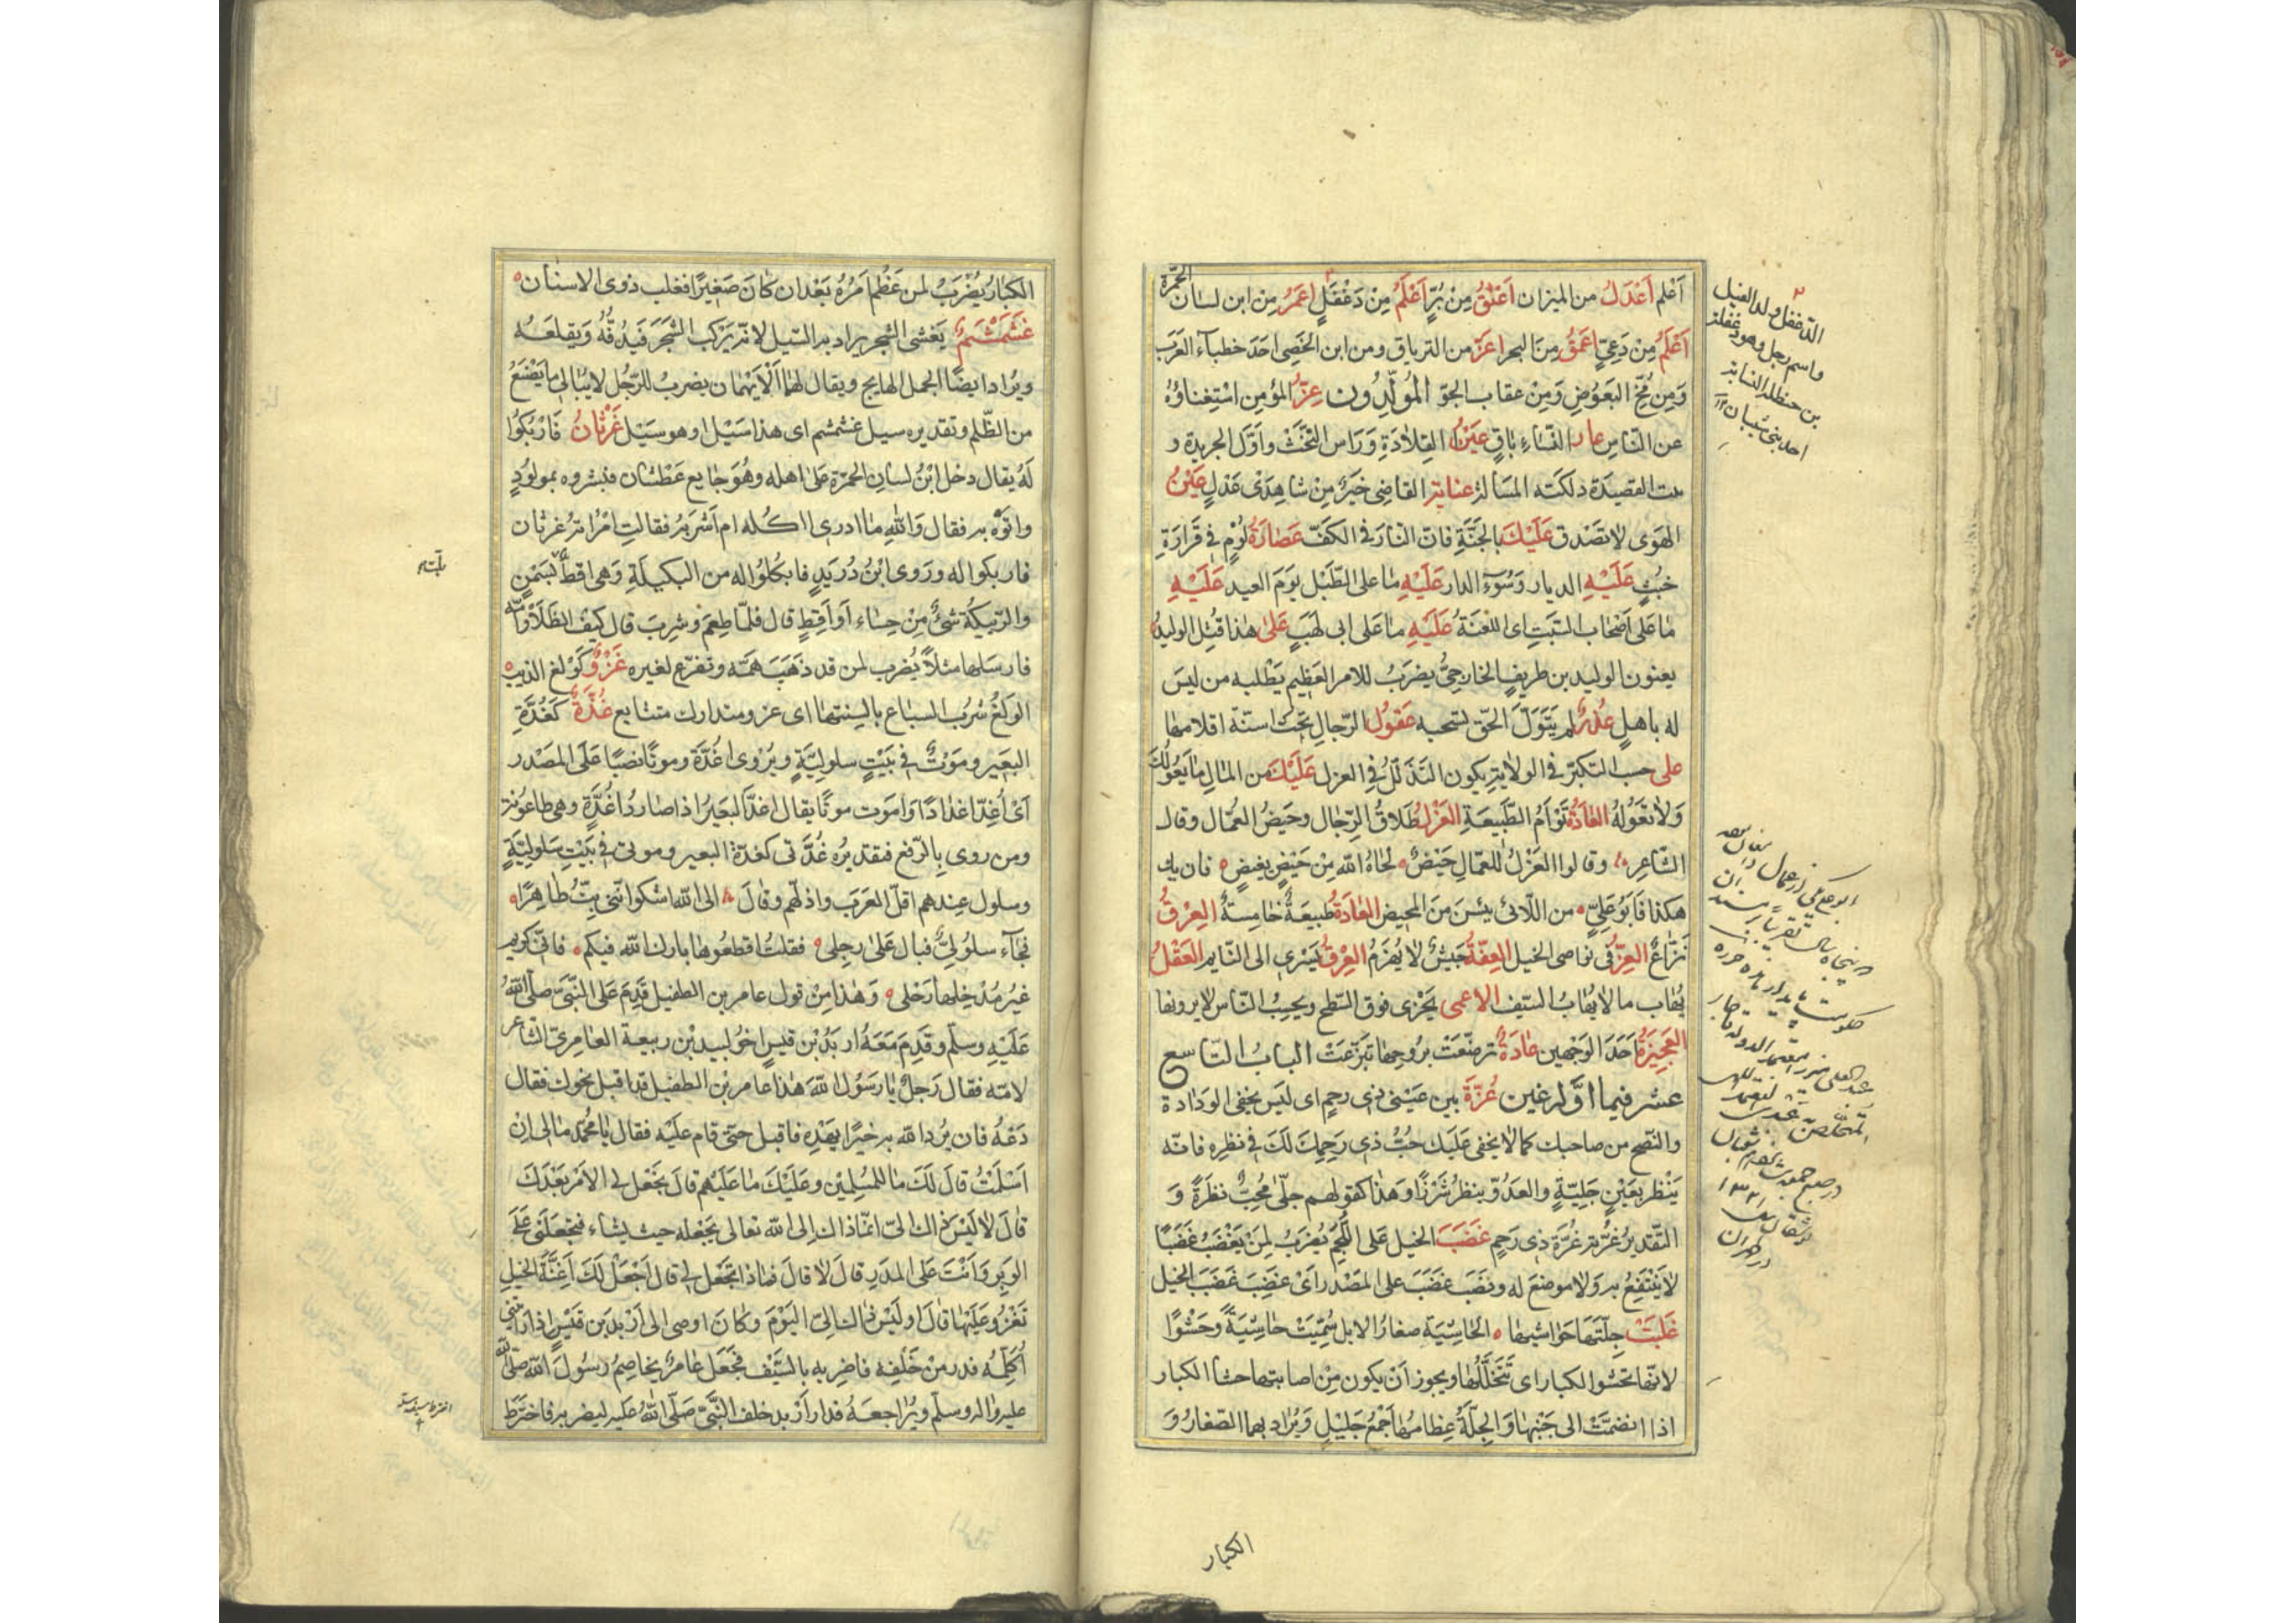 أعلم أَعْدَلُ من الميزان أَعْنَقُ مِنْ بُرٍّ أَعْلَمُ مِنْ دَغْفَلٍ أَعْمَرُ مِنْ ابن لسان الحُمَّرَة
أَعْلَمُ مِنْ دَعِيٍّ أَعْمَقُ مِنَ البحر أعَزّ من الترياق ومن ابن الخَصِى احَدَ خطباء العَرَب
وَمِن مُخِّ البَعُوضِ وَمِنْ عقاب الجوّ المُوَلَّدُون عِزُّ المؤمِن اسْتِغناؤهُ
عن النّاسِ عار النِّساءِ باقٍ عَيْنُ القِلادَةِ وَرَاس التَّخْتْ واَوّل الجريدة و
بيت القصيدَة ونُكتَه المسَالة عناية القاضى خَيرٌ مِنْ شاهِدَىْ عَدْلٍ عَيْنُ
الهَوَى لا تَصْدق عَلَيْكَ بالجَنَّةِ فانّ النّارَ فى الكَفّ عَصَارَةُ لُؤْمٍ فى قَرَارَةِ
خُبْثٍ عَلَيْهِ الديار وَسُوءَ الدار عَلَيْهِ ما على الطَّبْل يَوَمَ العيد عَلَيْهِ
مَا عَلى أَصْحَاب السَّبْتِ اى اللعْنَةُ عَلَيْهِ ما على ابى لَهَبٍ عَلى هٰذا قُتِل الوليدُ
يعنون الوليد بن طريفٍ الخارجِىَّ يضرَبُ للامر العَظِيم يَطْلبه من ليسَ
له باهلٍ عُذْرٌ لم يَتَوَلَّ الحَقّ نسَجه عقولُ الرّجالِ تحتَ اسنّة اقلامها
على حسب التكبّر فى الولاية يكون التذَلّلُ فى العزل عَلَيْكَ من المالِ ما يَعُولُكَ
وَلا تَعُولُهُ العادَةُ تَوْأمُ الطَّبيعَةِ العَزْلُ طَلاقُ الرّجال وحَيْضُ العُمّال وقال
الشّاعر وقالوا العَزْلُ للعمّالِ حَيْضٌ لحَاهُ الله مِنْ حَيْضٍ بغيضٍ فان يك
هكذا فابَوُعَلِيٍّ من اللّائى يئسْنَ مَنَ المحِيض العَادَةُ طبيعَةٌ خامِسةٌ العِرْقُ
نَزّاعٌ العِزُّ فى نواصى الخيل العِفّةُ جَيشٌ لا يُهْزَمُ العِرْقُ يَسْرى الى النّايم العَقْلُ
يُهَاب ما لا يُهَابُ السّيف الاعمى يَخْزى فوق السَّطح ويحِبُ النّاس لا يرونها
العَجِيزَةُ اَحَدَ الوَجْهين عَادَةٌ ترضّعَتْ برُوحها تَنَزّعَتْ البابُ التّاسع
عشر فيما اوَّله غين غُرَّةَ بين عَيْنَى ذى رحمٍ اى لَيسَ يخفى الودادة
والنّصح من صاحبك كما لا يخفى عَلَيك حُبُّ ذى رَحِمِكَ لَكَ فى نظرِهِ فانّه
يَنظر بعَيْنٍ جَلِيّةٍ والعَدُوّ ينظرُ شَزْرًا وَهذا كقولهم جلّى مُحِبٌّ نظَرَةً وَ
التّقديرُ غُرّته غُرَّة ذى رَحِمٍ غَضَبَ الخيلِ عَلَى اللُّجُمِ يُضرَبُ لِمَنْ يَغْضَبُ غَضَبًا
لا يَنْتَفِعُ به وَلا موضعَ له ونصَبَ غَضَبَ على المَصْدر اَىْ غَضِبَ غَضَبَ الخيل
غَلَبَتْ جِلّتَهَا حَوَاشيها الحَاشِيَة صغارُ الابل سُمِّيَتْ حَاشِيَةً وَحَشْوًا
لانّها تَحْشُوا الكبار اى تَتَخَلَّلُها ويجوز اَنْ يكون مِنْ اصابتها حشا الكبار
اذا انضمَّتْ الى جَنْبها وَالجِلَّةُ عِظامُها جَمْعُ جَليْلٍ وَيُرَاد بهما الصّغارُ وَ
الكبار
الدّغفل ولد الفيل
واسم رجل وهو دغفل
بن حنظلة النسابة
احد بنى شيبان
الكِبَارُ يُضْرَبُ لمن عَظُمَ اَمْرُهُ بَعْدان كانَ صَغِيرًا فغلب ذوى الاسنان
غَشَمْشَمٌ يَغْشى الشجر يراد به السّيل لانّه يَرْكب الشّجَرَ فَيَدُقُّهُ وَيقلعُه
ويُراد ايضًا الجمل الهايج ويقال لهُما الْاَيْهَمَان يضربُ للرَّجُل لا يُبَالى ما يَصْنَعُ
من الظّلم وتقديره سيل غشمشم اى هذا سَيْل اوهو سَيْل غَرْثَانُ فَارْبُكُوا
لَهُ يقال دخل ابْنُ لسانِ الحمّرَة عَلى اهله وهُوَ جايع عَطْشان فبشروه بمولودٍ
واتوْه به فقال وَاللهِ ما ادرى ااكله ام اَشْرَبُهُ فقالتِ امْرَاتهُ غرثان
فاربكوا له ورَوى ابْنُ دُرَيدٍ فابكُلوُا له من البَكيلَةِ وَهى اقط بسَمْنٍ
والرَّبيكَة شىْءٌ مِنْ حِسَاءٍ اَو اَقِطٍ قال فلمّا طعِمَ وشِربَ قال كيْف الطَّلَا وَأُمُّه
فارسَلها مثلاً يُضرب لمن قد ذَهَبَ همّه وتفرّغ لغيره غَزْوٌ كَوْلغِ الذيب
الوَلغُ شُرْبُ السبَاع بالسِنتها اى غزو متدارك متتابع غُدَّةٌ كَغُدَّةِ
البعَيرِ ومَوْتٌ فى بَيْتٍ سلوليَّةٍ ويُرْوى اغُدَّةً وموتًا نصبًا عَلَى المَصْدر
اَىْ أُغِدّا غدادًا وَاَمَوت موتًا يقال اغدّا لبعَيرُ اذا صار ذا غُدَّةٍ وهى طاعونه
ومن روى بِالرّفع فتقديرُه غُدَّتى كغدّة البعير وموتى فى بَيْتِ سَلوليَّةٍ
وسلول عِندهم اقلّ العَرَب واذلّهم وقالَ الى الله اشكوا نّنى بِتُّ طاهِرًا
فجآء سلُولىٌّ فبال عَلى رِجلى فقلتُ اقطعُوها بارك الله فيكم فانّى كريم
غيرُ مُدْخِلها رَحْلى وَهٰذا مِنْ قول عامر بن الطفيل قَدِمَ عَلَى النَّبىّ صلّى اللهُ
عَلَيْهِ وسلّم وقَدِم مَعَهُ اربَدُ بْن قيسٍ اخُو لبيد بْن ربيعة العامِرىّ الشاعر
لامّه فقال رَجلٌ يا رَسُولَ اللهِ هٰذا عامر بْن الطفيل قد اقبل نحوك فقال
دَعْهُ فان يُرد الله به خيْرًا يهْدِه فاقبل حَتى قام عليْه فقال يا مُحَمّدُ ما لى اِنْ
اَسْلَمْتُ قالَ لَكَ ما للمُسْلِمِيْن وعَلَيْكَ ما عَلَيْهم قالَ تَجْعل لى الاَمْر بَعْدَكَ
قالَ لا لَيْسَ ذاك الىّ انّما ذاك اِلى الله تعالى يجعْله حيث يشاء فتجعَلنى عَلَى
الوبَرِ وَاَنْتَ عَلى المدَرِ قالَ لا قالَ فماذا تجعَل لى قال اَجْعَلُ لَكَ اَعِنَّةَ الخيلِ
تغْزُو عَلَيْها قالَ او لَيْس ذلك الىّ اليَوْمَ وَكانَ اوصى الى اَرْبدَ بن قَيْسٍ اذا راَيْتنى
اُكَلِّمُه فدر مِنْ خَلْفِه فاضربه بالسّيْف فَجَعَلَ عَامِرٌ يخاصِمُ رسُولَ الله صلى الله
عليه واله وسلّم ويُراجعهُ فدار اَرْبد خلف النَّبىّ صَلّى اللهُ عليه ليضربه فاخترَط